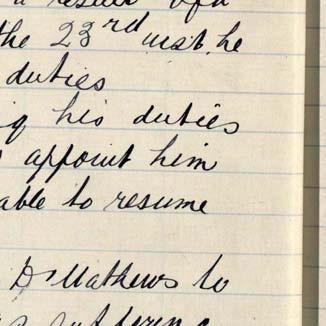 a result of a
the 23rd inst. he
duties
his duties
appoint him
able to resume
Dr Mathews to
suffering